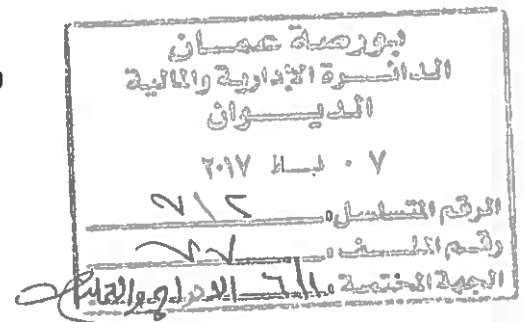 بورصة عمان
الدائرة الإدارية والمالية
الديوان
٠٧ شباط ٢٠١٧
الرقم المتسلسل: ٧١٢
رقم الملف:
الجهة المختصة: الإدراج